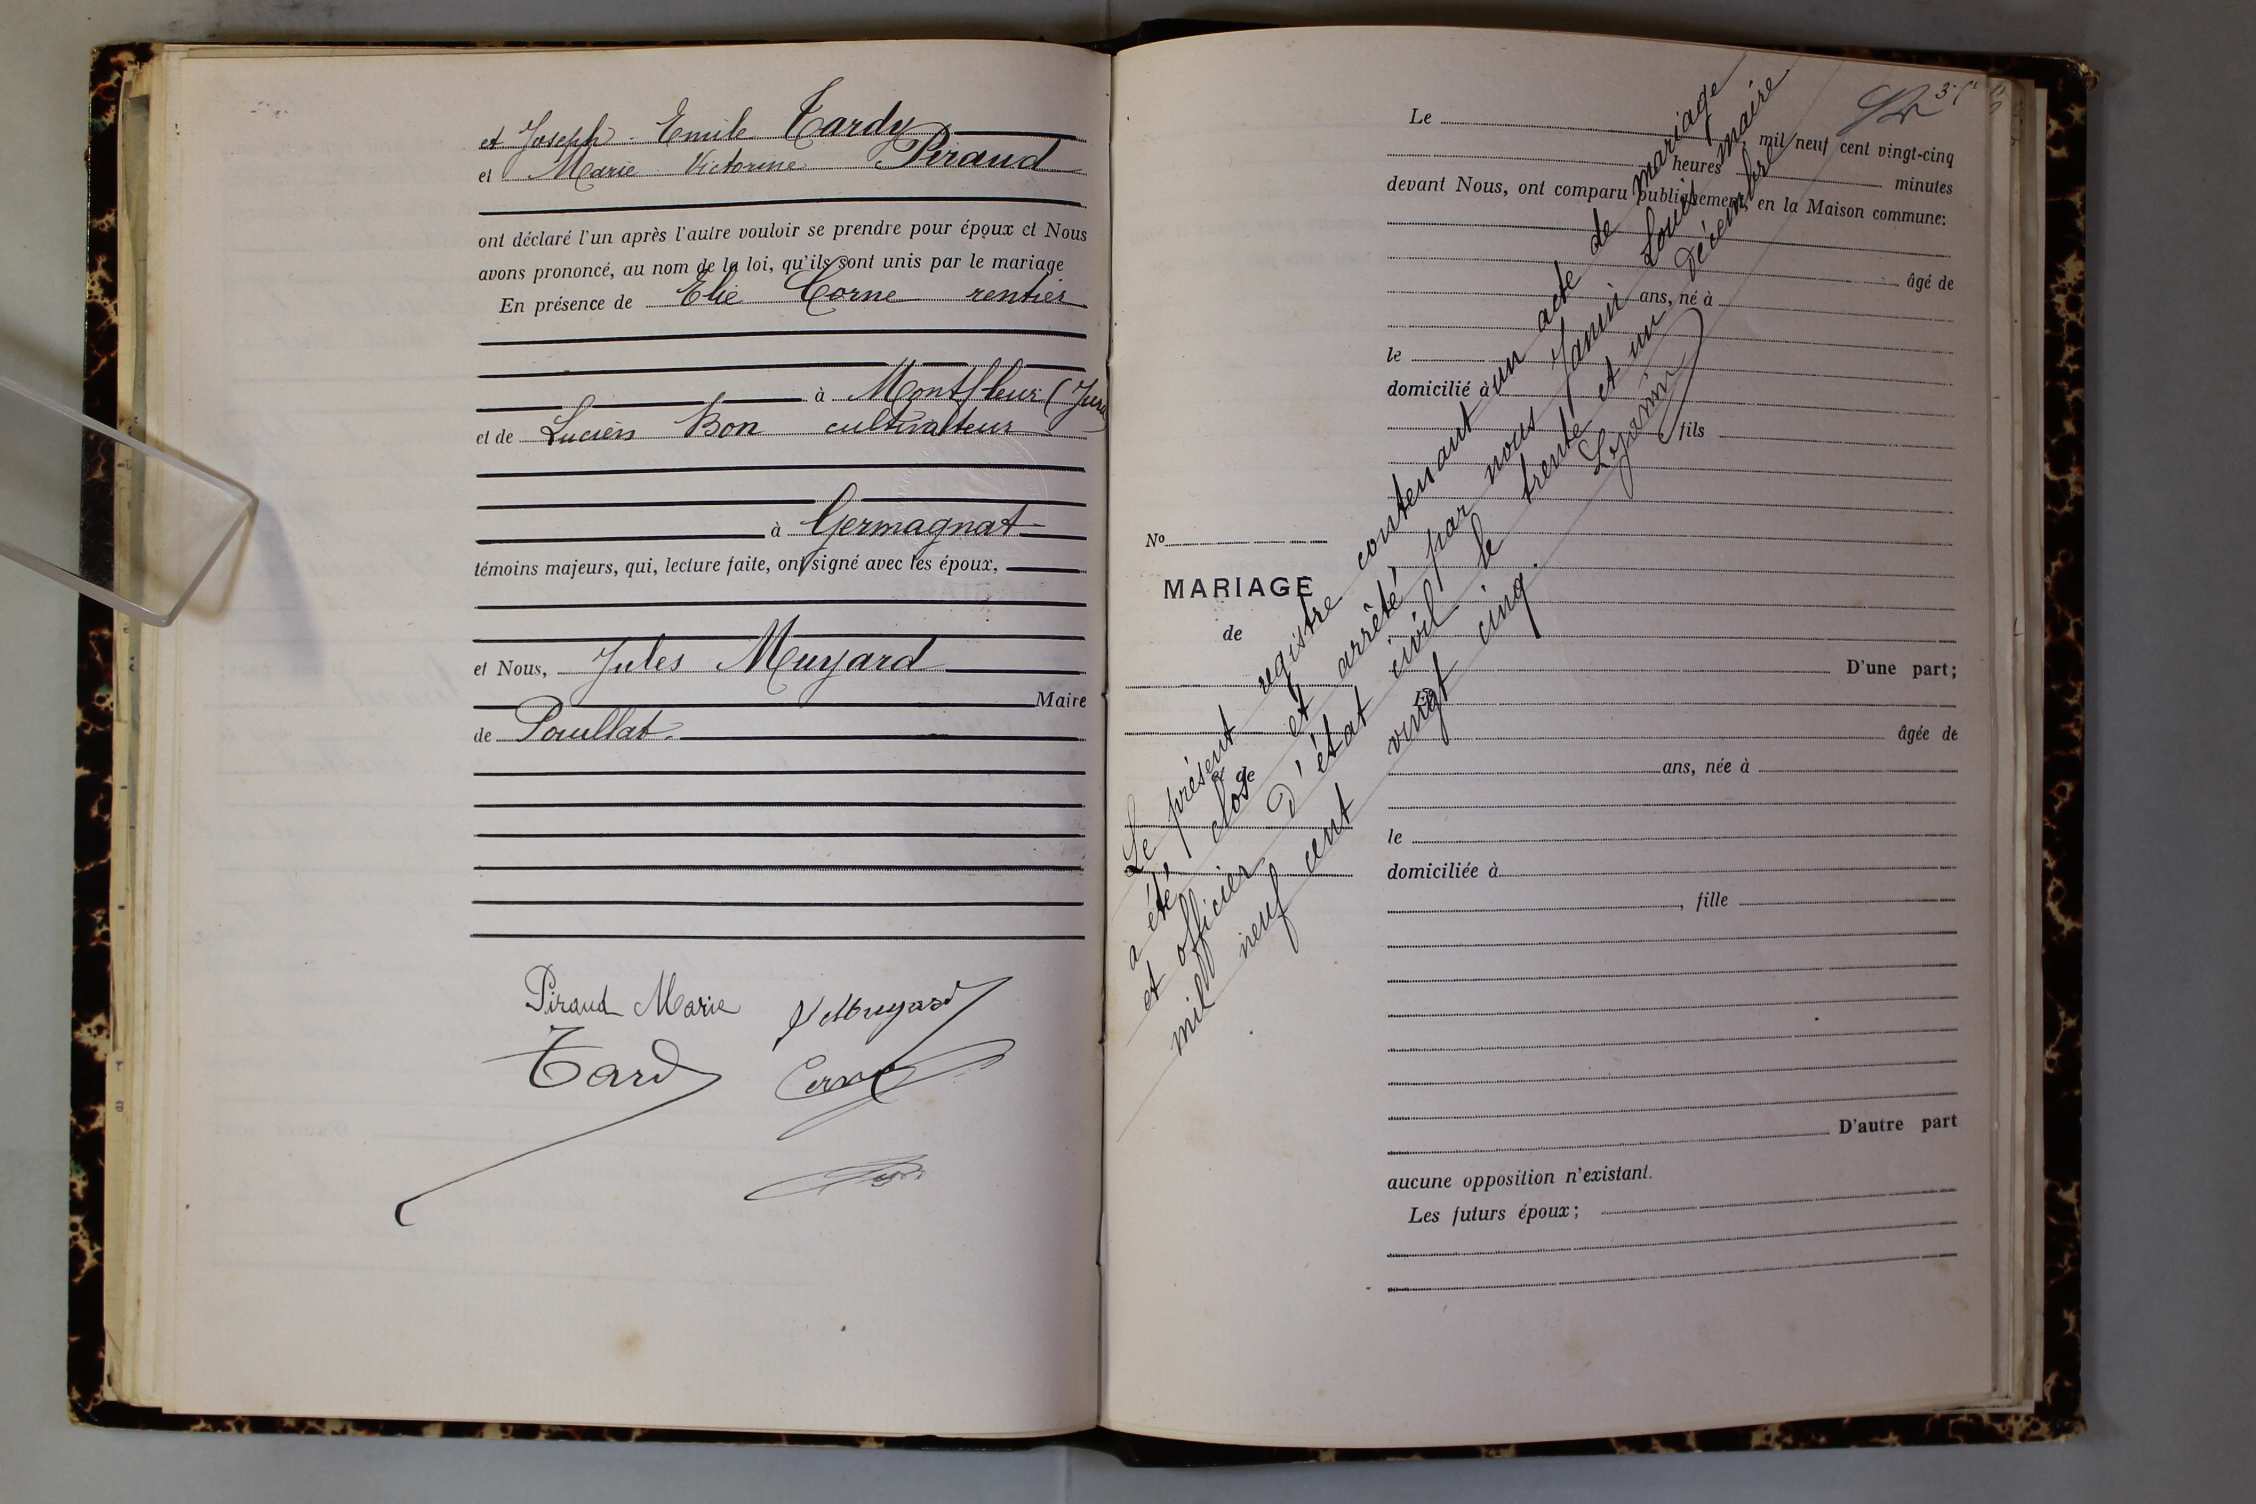 et Joseph Emile Tardy
et Marie Victorine Piraud
ont déclaré l'un après l'autre vouloir se prendre pour époux et Nous
avons prononcé, au nom de la loi, qu'ils sont unis par le mariage
En présence de Elie Corne rentier
à Montfleur (Jura
et de Lucien Bon cultivatteur
à Germagnat
témoins majeurs, qui, lecture faite, ont signé avec les époux,
et Nous, Jules Muyard
Maire
de Pouillat
Piraud Marie J Muyard
Tardy Corne
3
Le mil neuf cent vingt-cinq
heures minutes
devant Nous, ont comparu publiquement en la Maison commune:
âgé de
ans, né à
le
domicilié à
fils
No
MARIAGE
de
D'une part;
Et
âgée de
& de
ans, née à
le
domiciliée à
, fille
D'autre part
aucune opposition n'existant.
Les futurs époux;
Le présent registre contenant un acte de mariage
a été clos et arrêté par nous Janin Louis maire
et officier d'état civil le trente et un Décembre
mil neuf cent vingt cinq.
L Janin